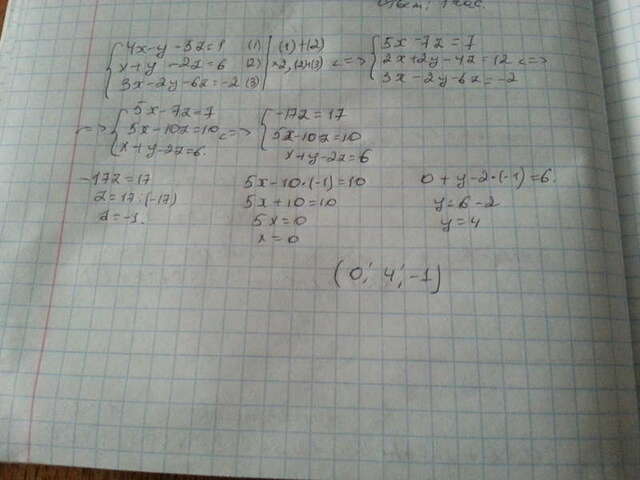 Ответ: 7 час.
{ 4x-y-3z=1 (1) | (1)+(2)
{ x+y-2z=6 (2) | ×2, (2)+(3) <=>
{ 3x-2y-6z=-2 (3)
{ 5x-7z=7
{ 2x+2y-4z=12 <=>
{ 3x-2y-6z=-2
=> { 5x-7z=7
{ 5x-10z=10 <=>
{ x+y-2z=6.
{ -17z=17
{ 5x-10z=10
{ x+y-2z=6
-17z=17
z=17:(-17)
z=-1.
5x-10·(-1)=10
5x+10=10
5x=0
x=0
0+y-2·(-1)=6.
y=6-2
y=4
(0; 4; -1)